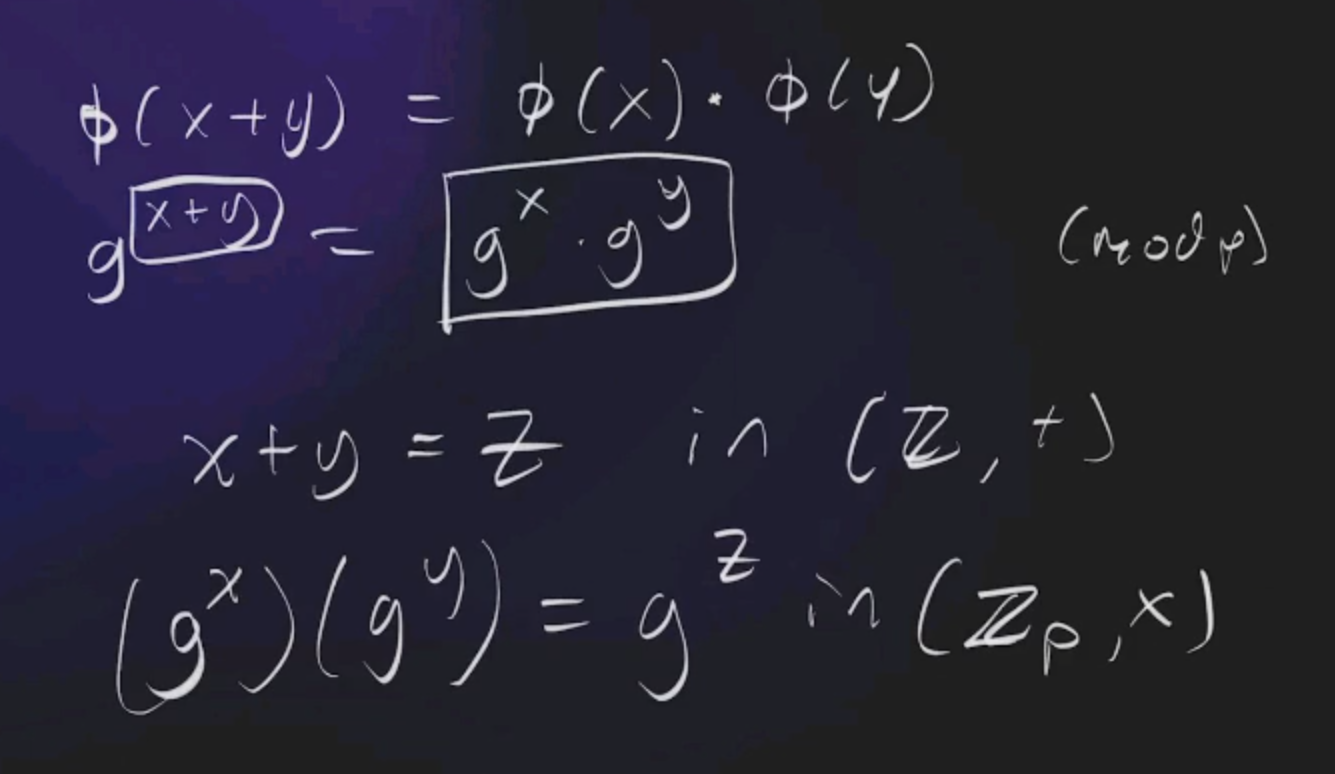 ϕ(x+y) = ϕ(x)·ϕ(y)
g^{x+y} = g^x · g^y (mod p)
x+y = z in (ℤ, +)
(g^x)(g^y) = g^z in (ℤ_p, ×)